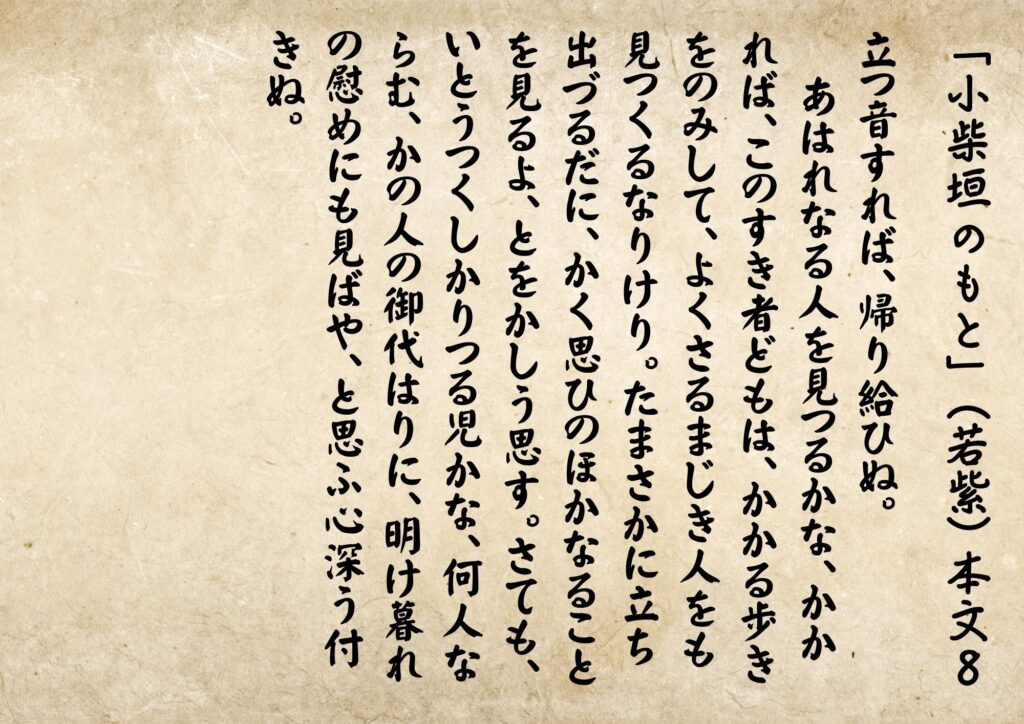 「小柴垣のもと」（若紫）本文８
立つ音すれば、帰り給ひぬ。
あはれなる人を見つるかな、かか
れば、このすき者どもは、かかる歩き
をのみして、よくさるまじき人をも
見つくるなりけり。たまさかに立ち
出づるだに、かく思ひのほかなること
を見るよ、とをかしう思す。さても、
いとうつくしかりつる児かな、何人な
らむ、かの人の御代はりに、明け暮れ
の慰めにも見ばや、と思ふ心深う付
きぬ。